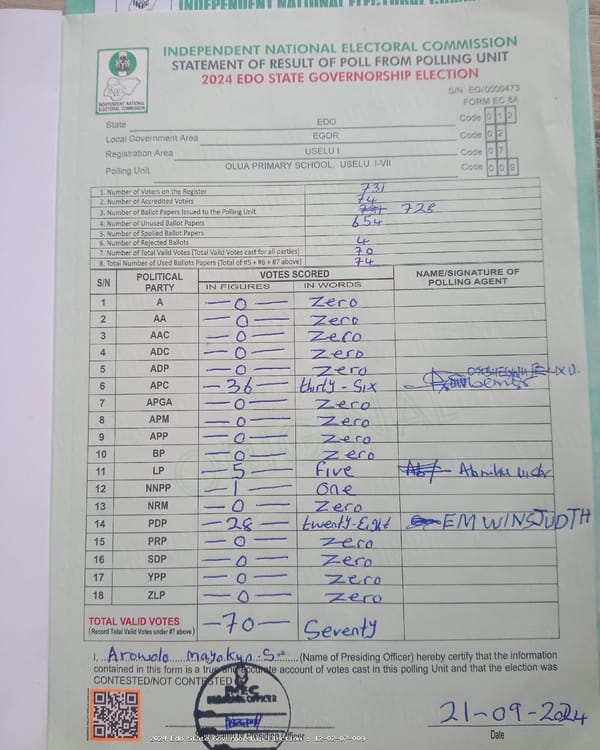 INDEPENDENT NATIONAL ELECTORAL COMMISSION
STATEMENT OF RESULT OF POLL FROM POLLING UNIT
2024 EDO STATE GOVERNORSHIP ELECTION
INDEPENDENT NATIONAL ELECTORAL COMMISSION
S/N EG/0000473
FORM EC 8A
State EDO Code 0 1 2
Local Government Area EGOR Code 0 2
Registration Area USELU I Code 0 7
Polling Unit OLUA PRIMARY SCHOOL, USELU I-VII Code 0 0 9
1. Number of Voters on the Register 731
2. Number of Accredited Voters 74
3. Number of Ballot Papers Issued to the Polling Unit 728
4. Number of Unused Ballot Papers 654
5. Number of Spoiled Ballot Papers
6. Number of Rejected Ballots 4
7. Number of Total Valid Votes (Total Valid Votes cast for all parties) 70
8. Total Number of Used Ballots Papers (Total of #5 + #6 + #7 above) 74
S/N POLITICAL PARTY VOTES SCORED NAME/SIGNATURE OF POLLING AGENT
IN FIGURES IN WORDS
1 A —0— Zero
2 AA —0— Zero
3 AAC —0— Zero
4 ADC —0— Zero
5 ADP —0— Zero
6 APC —36— thirty-Six
7 APGA —0— Zero
8 APM —0— Zero
9 APP —0— Zero
10 BP —0— Zero
11 LP —5— Five
12 NNPP —1— One
13 NRM —0— Zero
14 PDP —28— twenty-Eight EMWINSJUDTH
15 PRP —0— Zero
16 SDP —0— Zero
17 YPP —0— Zero
18 ZLP —0— Zero
TOTAL VALID VOTES —70— Seventy
(Record Total Valid Votes under #7 above)
I, Arowolo mayokun .S. (Name of Presiding Officer) hereby certify that the information
contained in this form is a true and accurate account of votes cast in this polling Unit and that the election was
CONTESTED/NOT CONTESTED
INEC
21-09-2024
Date